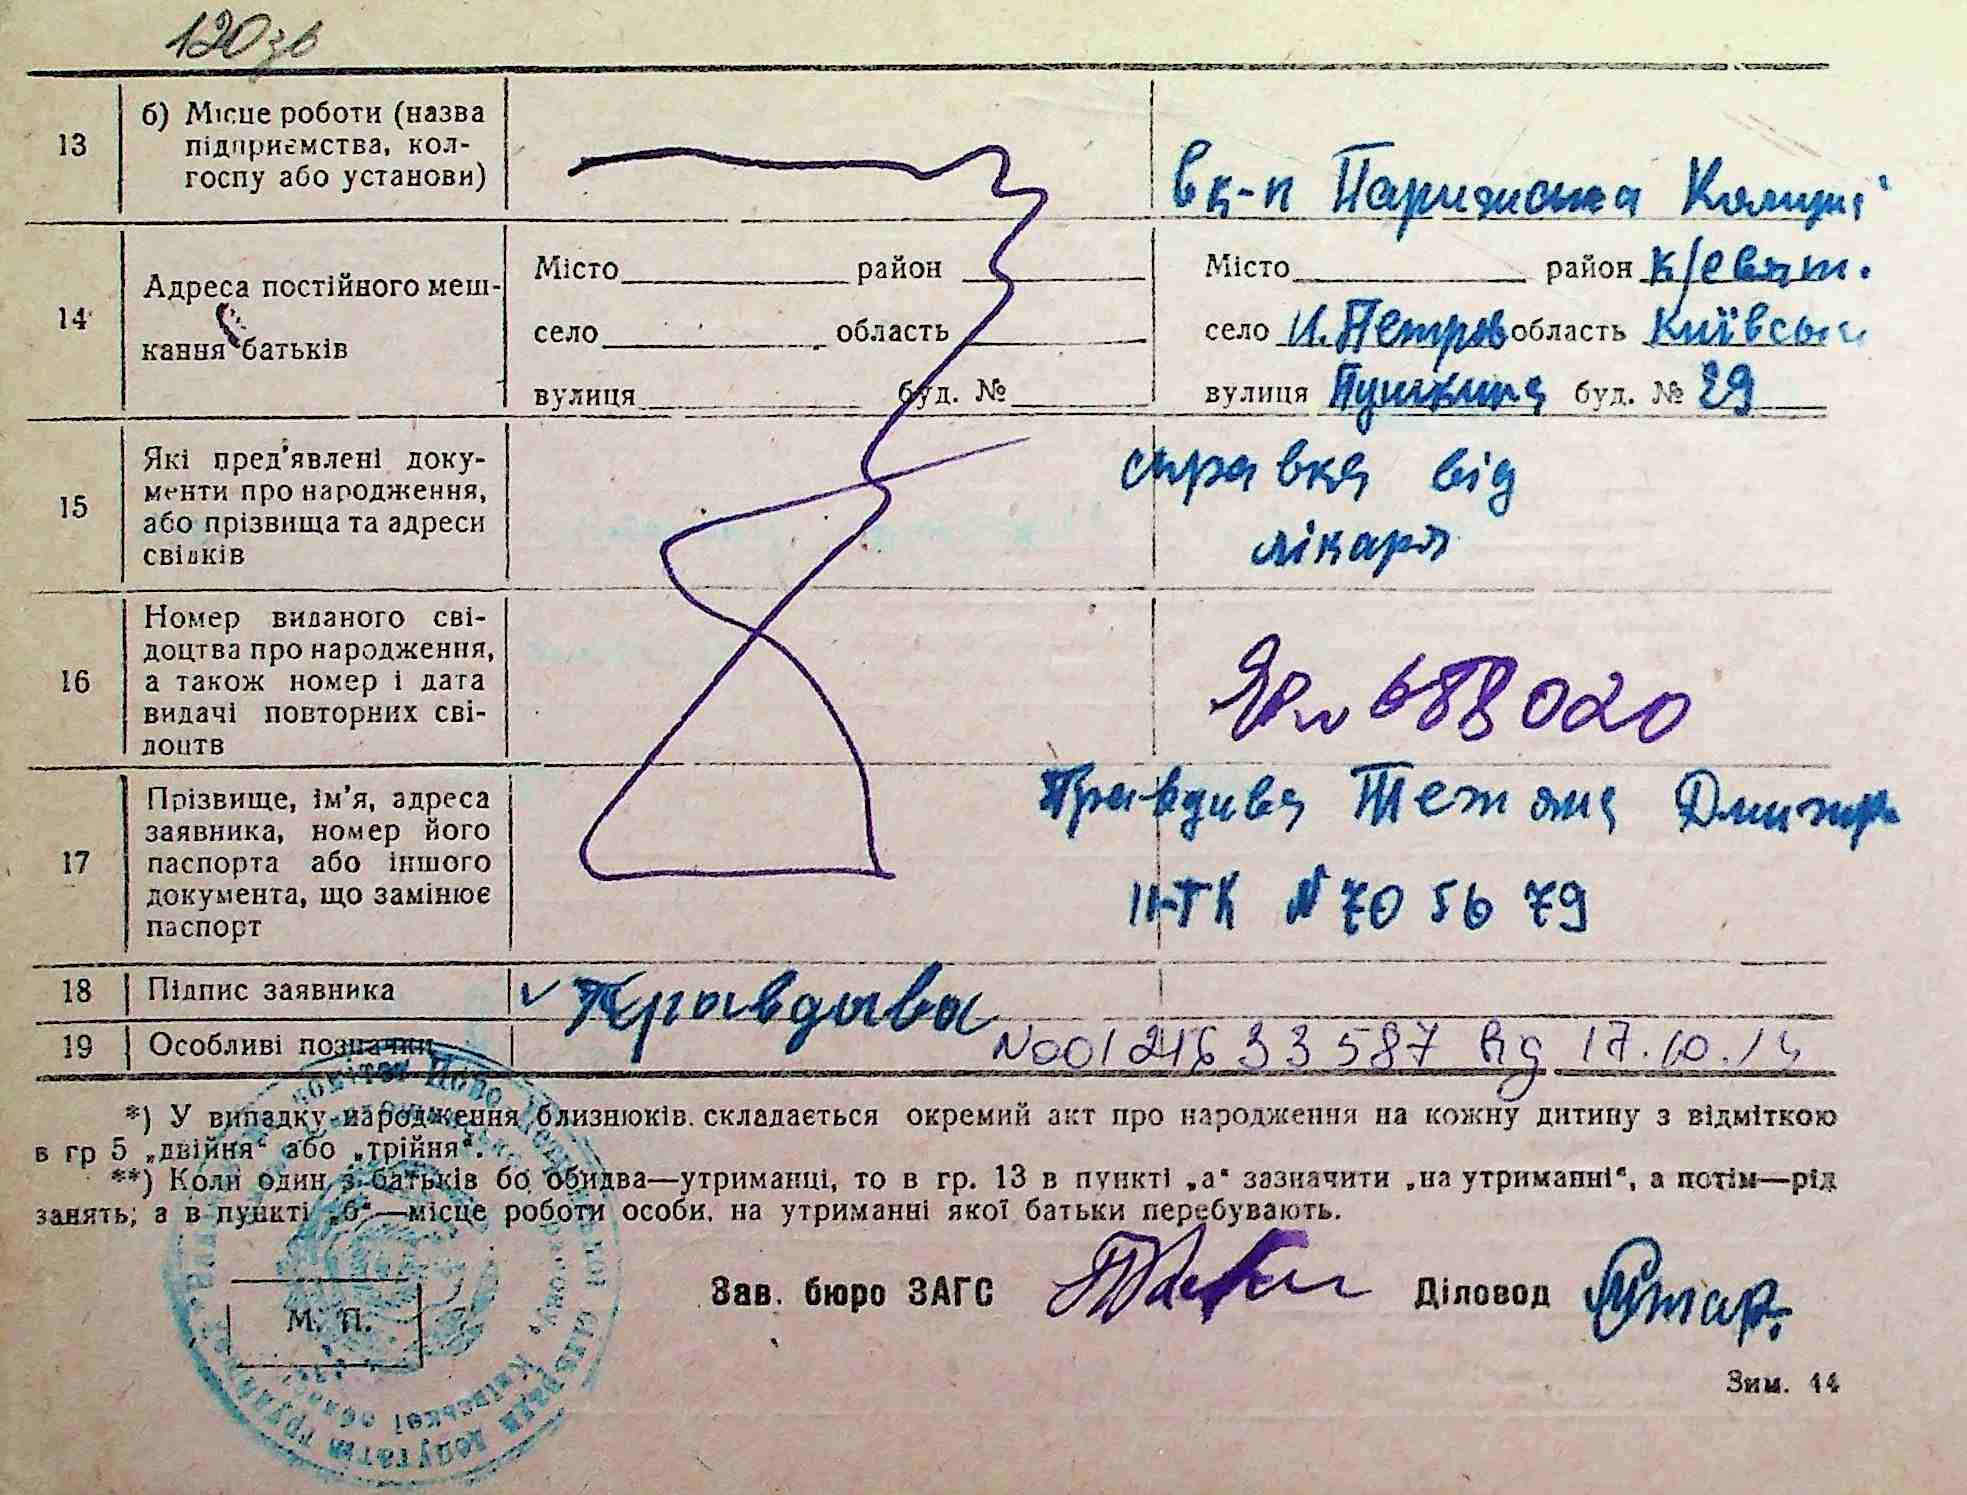 120зв
13
б) Місце роботи (назва
підприємства, кол-
госпу або установи)
вк-п Парижська Комуна
14
Адреса постійного меш-
кання батьків
Місто район
село область
вулиця буд. №
Місто район К/Святк.
село Н.Петров область Київськ
вулиця Пушкіна буд. № 29
15
Які пред'явлені доку-
менти про народження,
або прізвища та адреси
свідків
справка від
лікаря
16
Номер виданого сві-
доцтва про народження,
а також номер і дата
видачі повторних сві-
доцтв
688020
17
Прізвище, ім'я, адреса
заявника, номер його
паспорта або іншого
документа, що замінює
паспорт
Правдива Тетяна Дмитр
II-ТК N 705679
18
Підпис заявника
Правдива
19
Особливі позначки
N00121633587 від 17.10.14
*) У випадку народження близнюків складається окремий акт про народження на кожну дитину з відміткою
в гр 5 „двійня“ або „трійня“.
**) Коли один з батьків бо обидва—утриманці, то в гр. 13 в пункті „а“ зазначити „на утриманні“, а потім—рід
занять; а в пункті „б“—місце роботи особи, на утриманні якої батьки перебувають.
М. П.
Зав. бюро ЗАГС
Діловод
Київської області
депутатів трудящих
Зим. 44